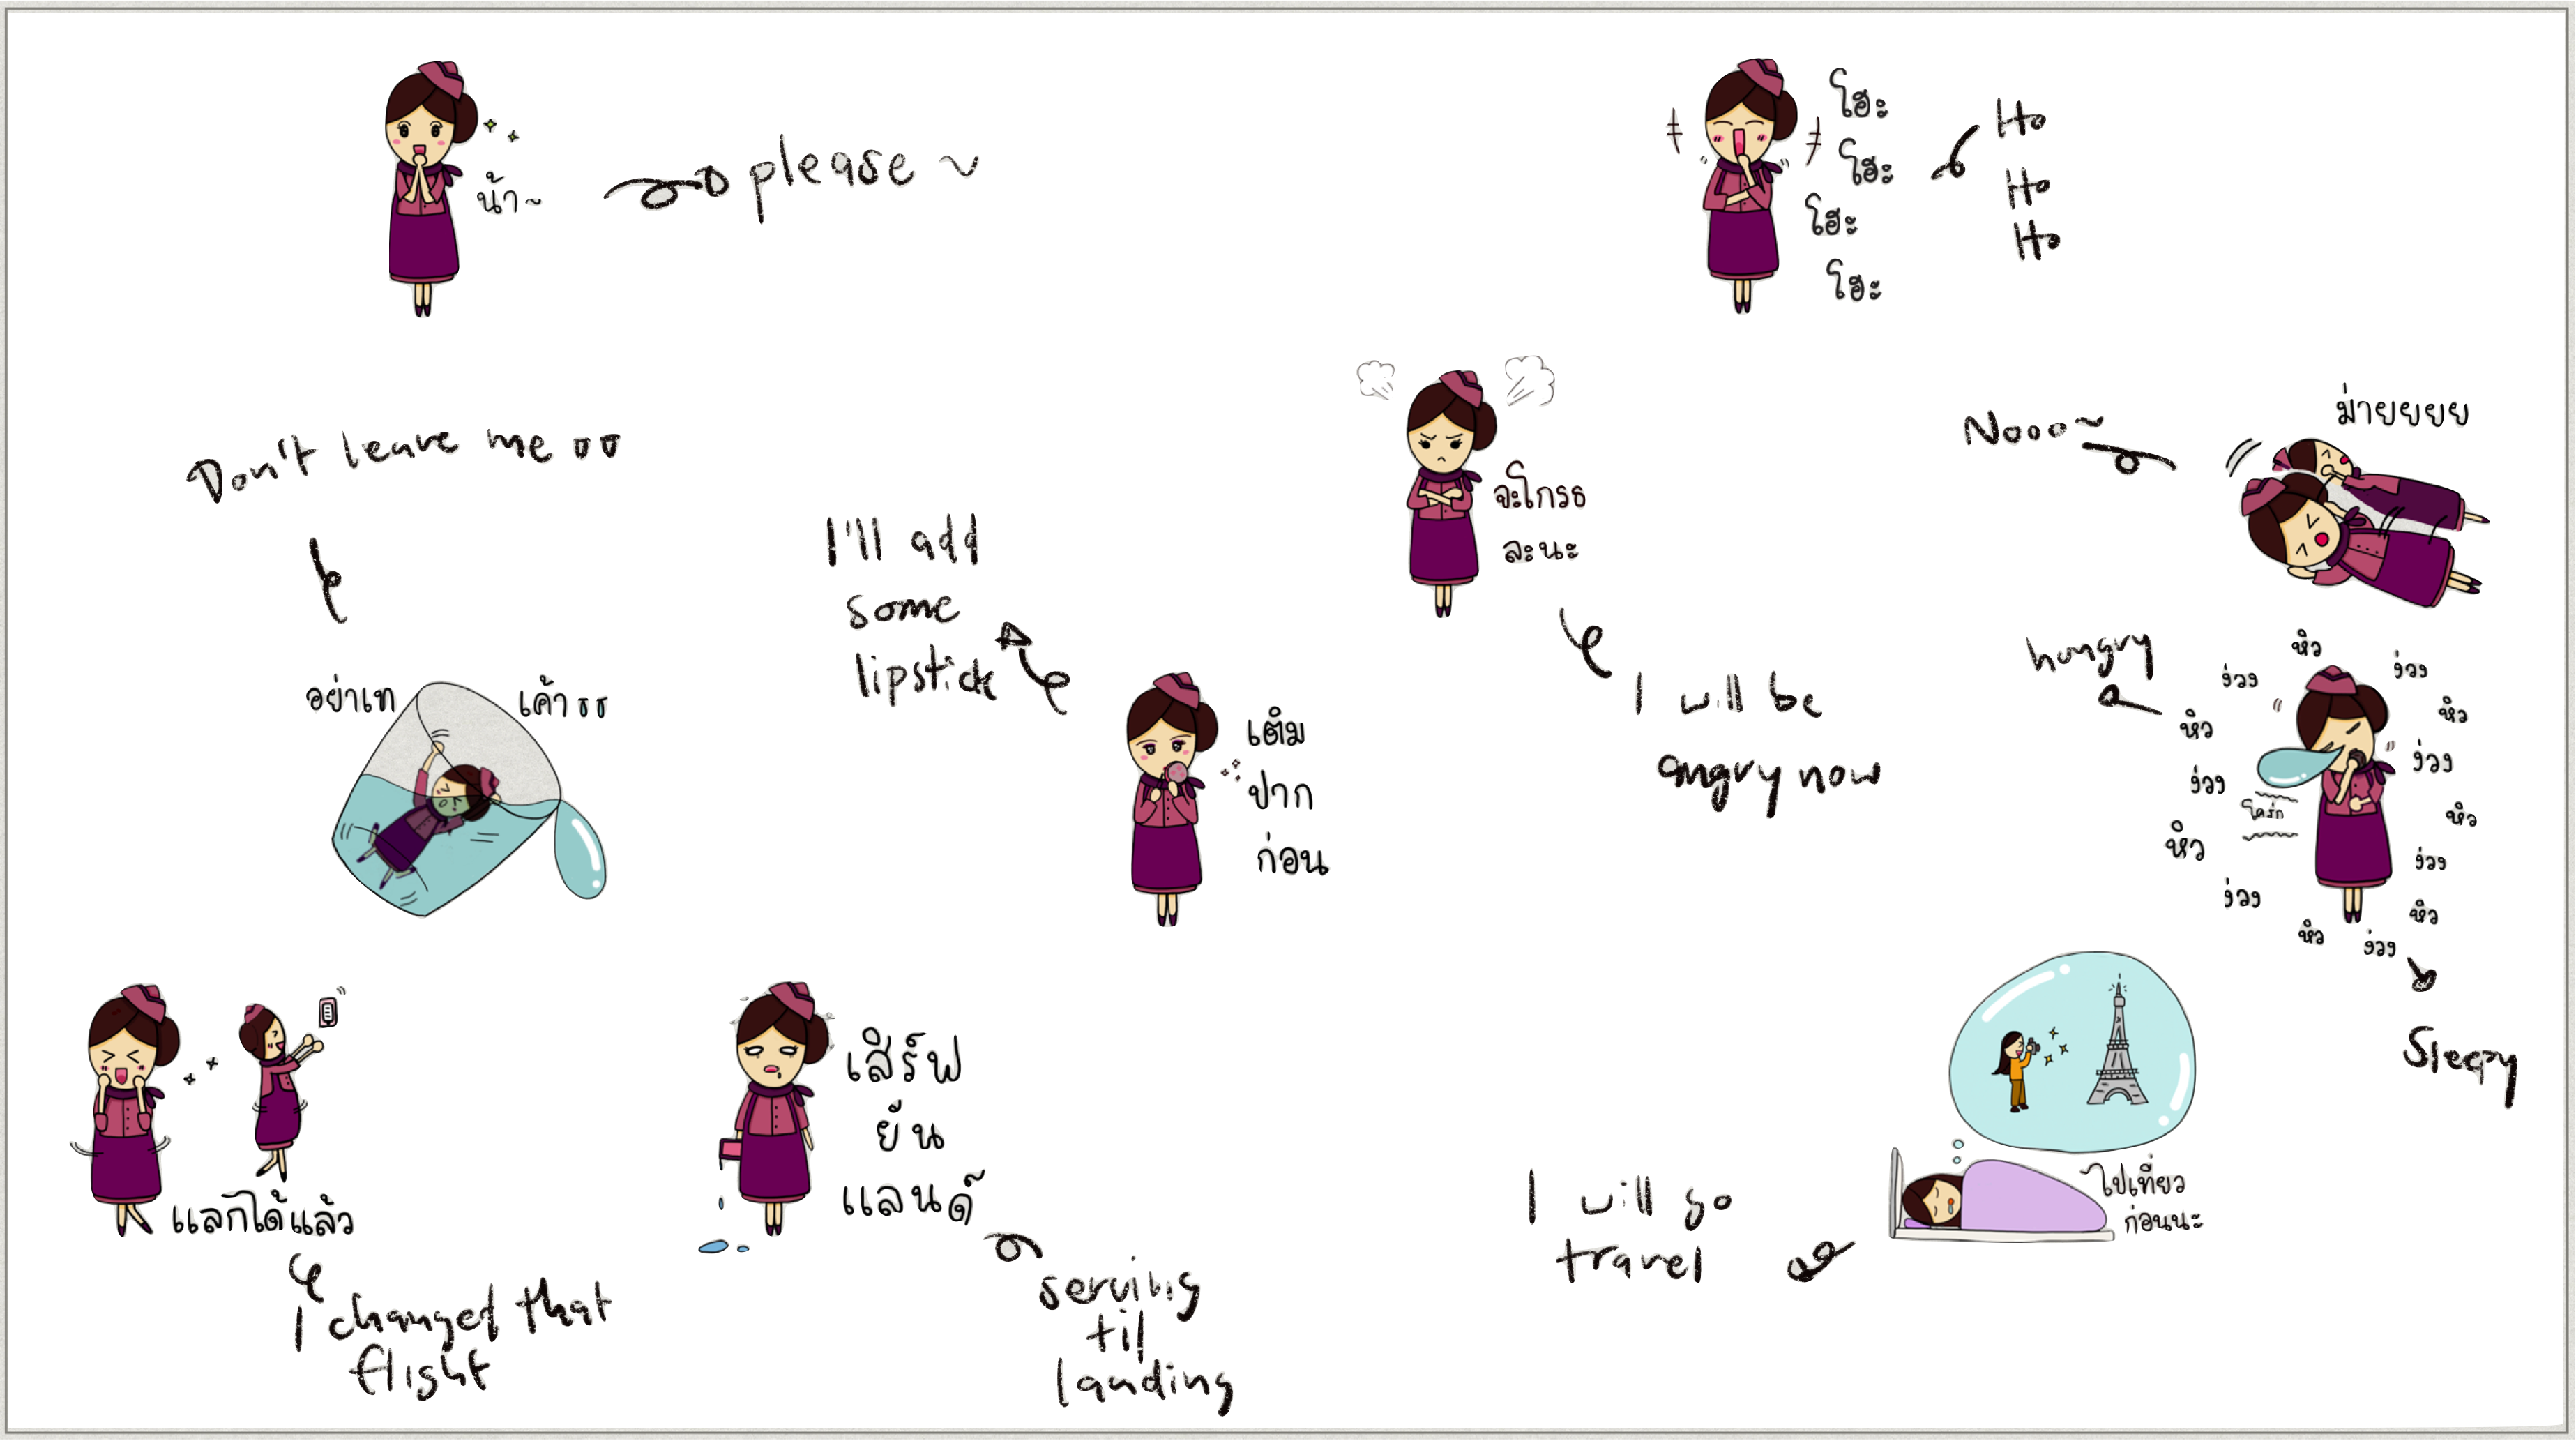 น้า~
please ~
โฮะ
โฮะ
โฮะ
โฮะ
Ho
Ho
Ho
Don't leave me ㅠㅠ
อย่าเท เค้า ㅠㅠ
I'll add
some
lipstick
เติม
ปาก
ก่อน
จะโกรธ
ละนะ
I will be
angry now
Nooo~
ม่ายยยย
hungry
หิว
ง่วง
ง่วง
หิว
หิว
ง่วง
ง่วง
โครก
หิว
หิว
ง่วง
ง่วง
หิว
หิว
ง่วง
Sleepy
แลกได้แล้ว
I changed that
flight
เสิร์ฟ
ยัน
แลนด์
serving
til
landing
ไปเที่ยว
ก่อนนะ
I will go
travel